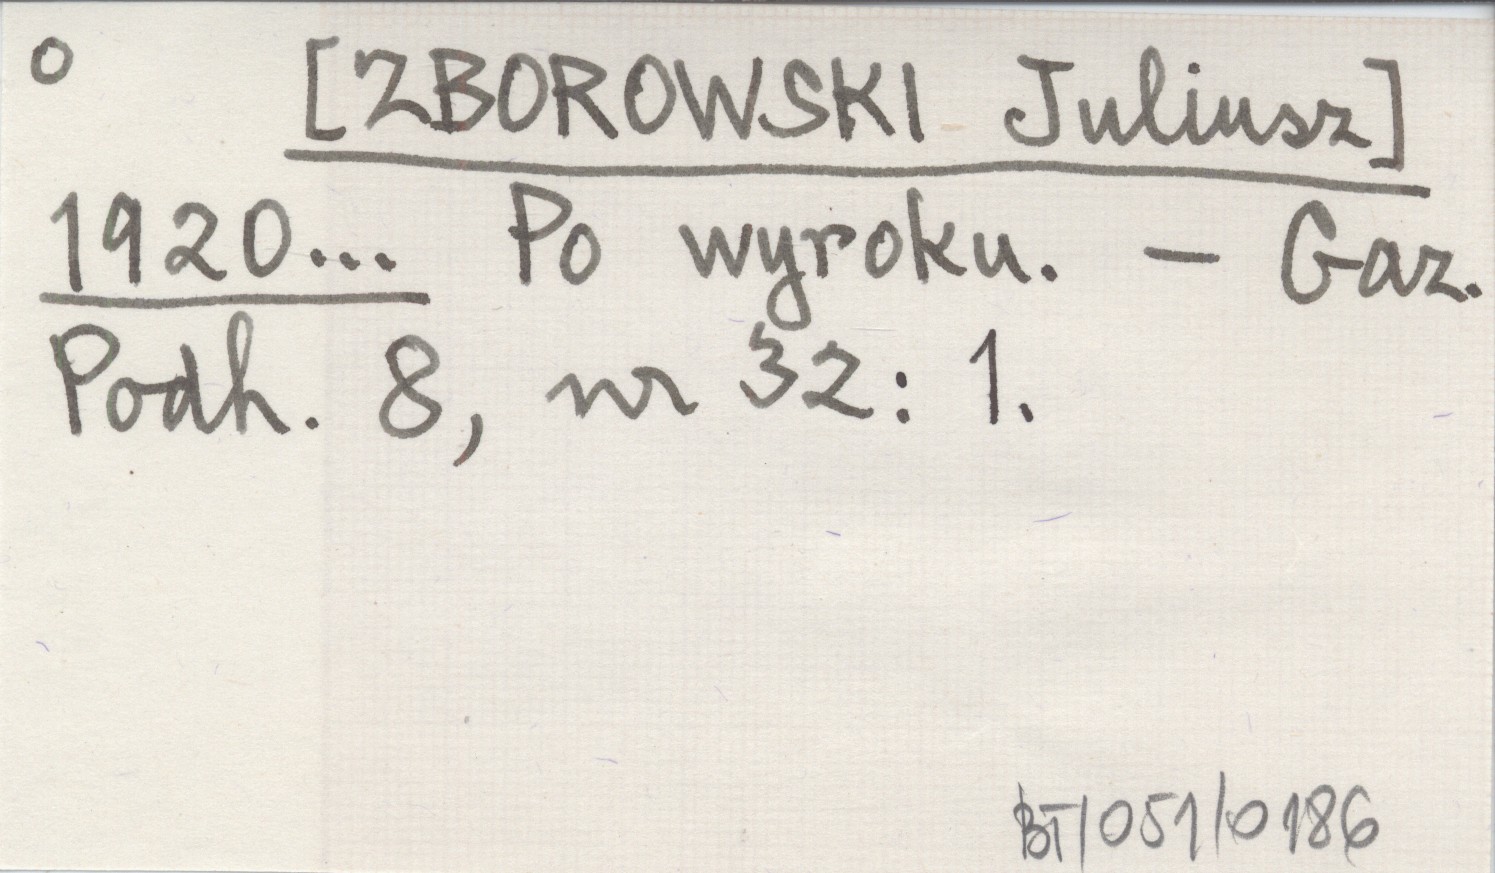 o [ZBOROWSKI Juliusz]
1920... Po wyroku. – Gaz.
Podh. 8, nr 32: 1.
BT/051/0186